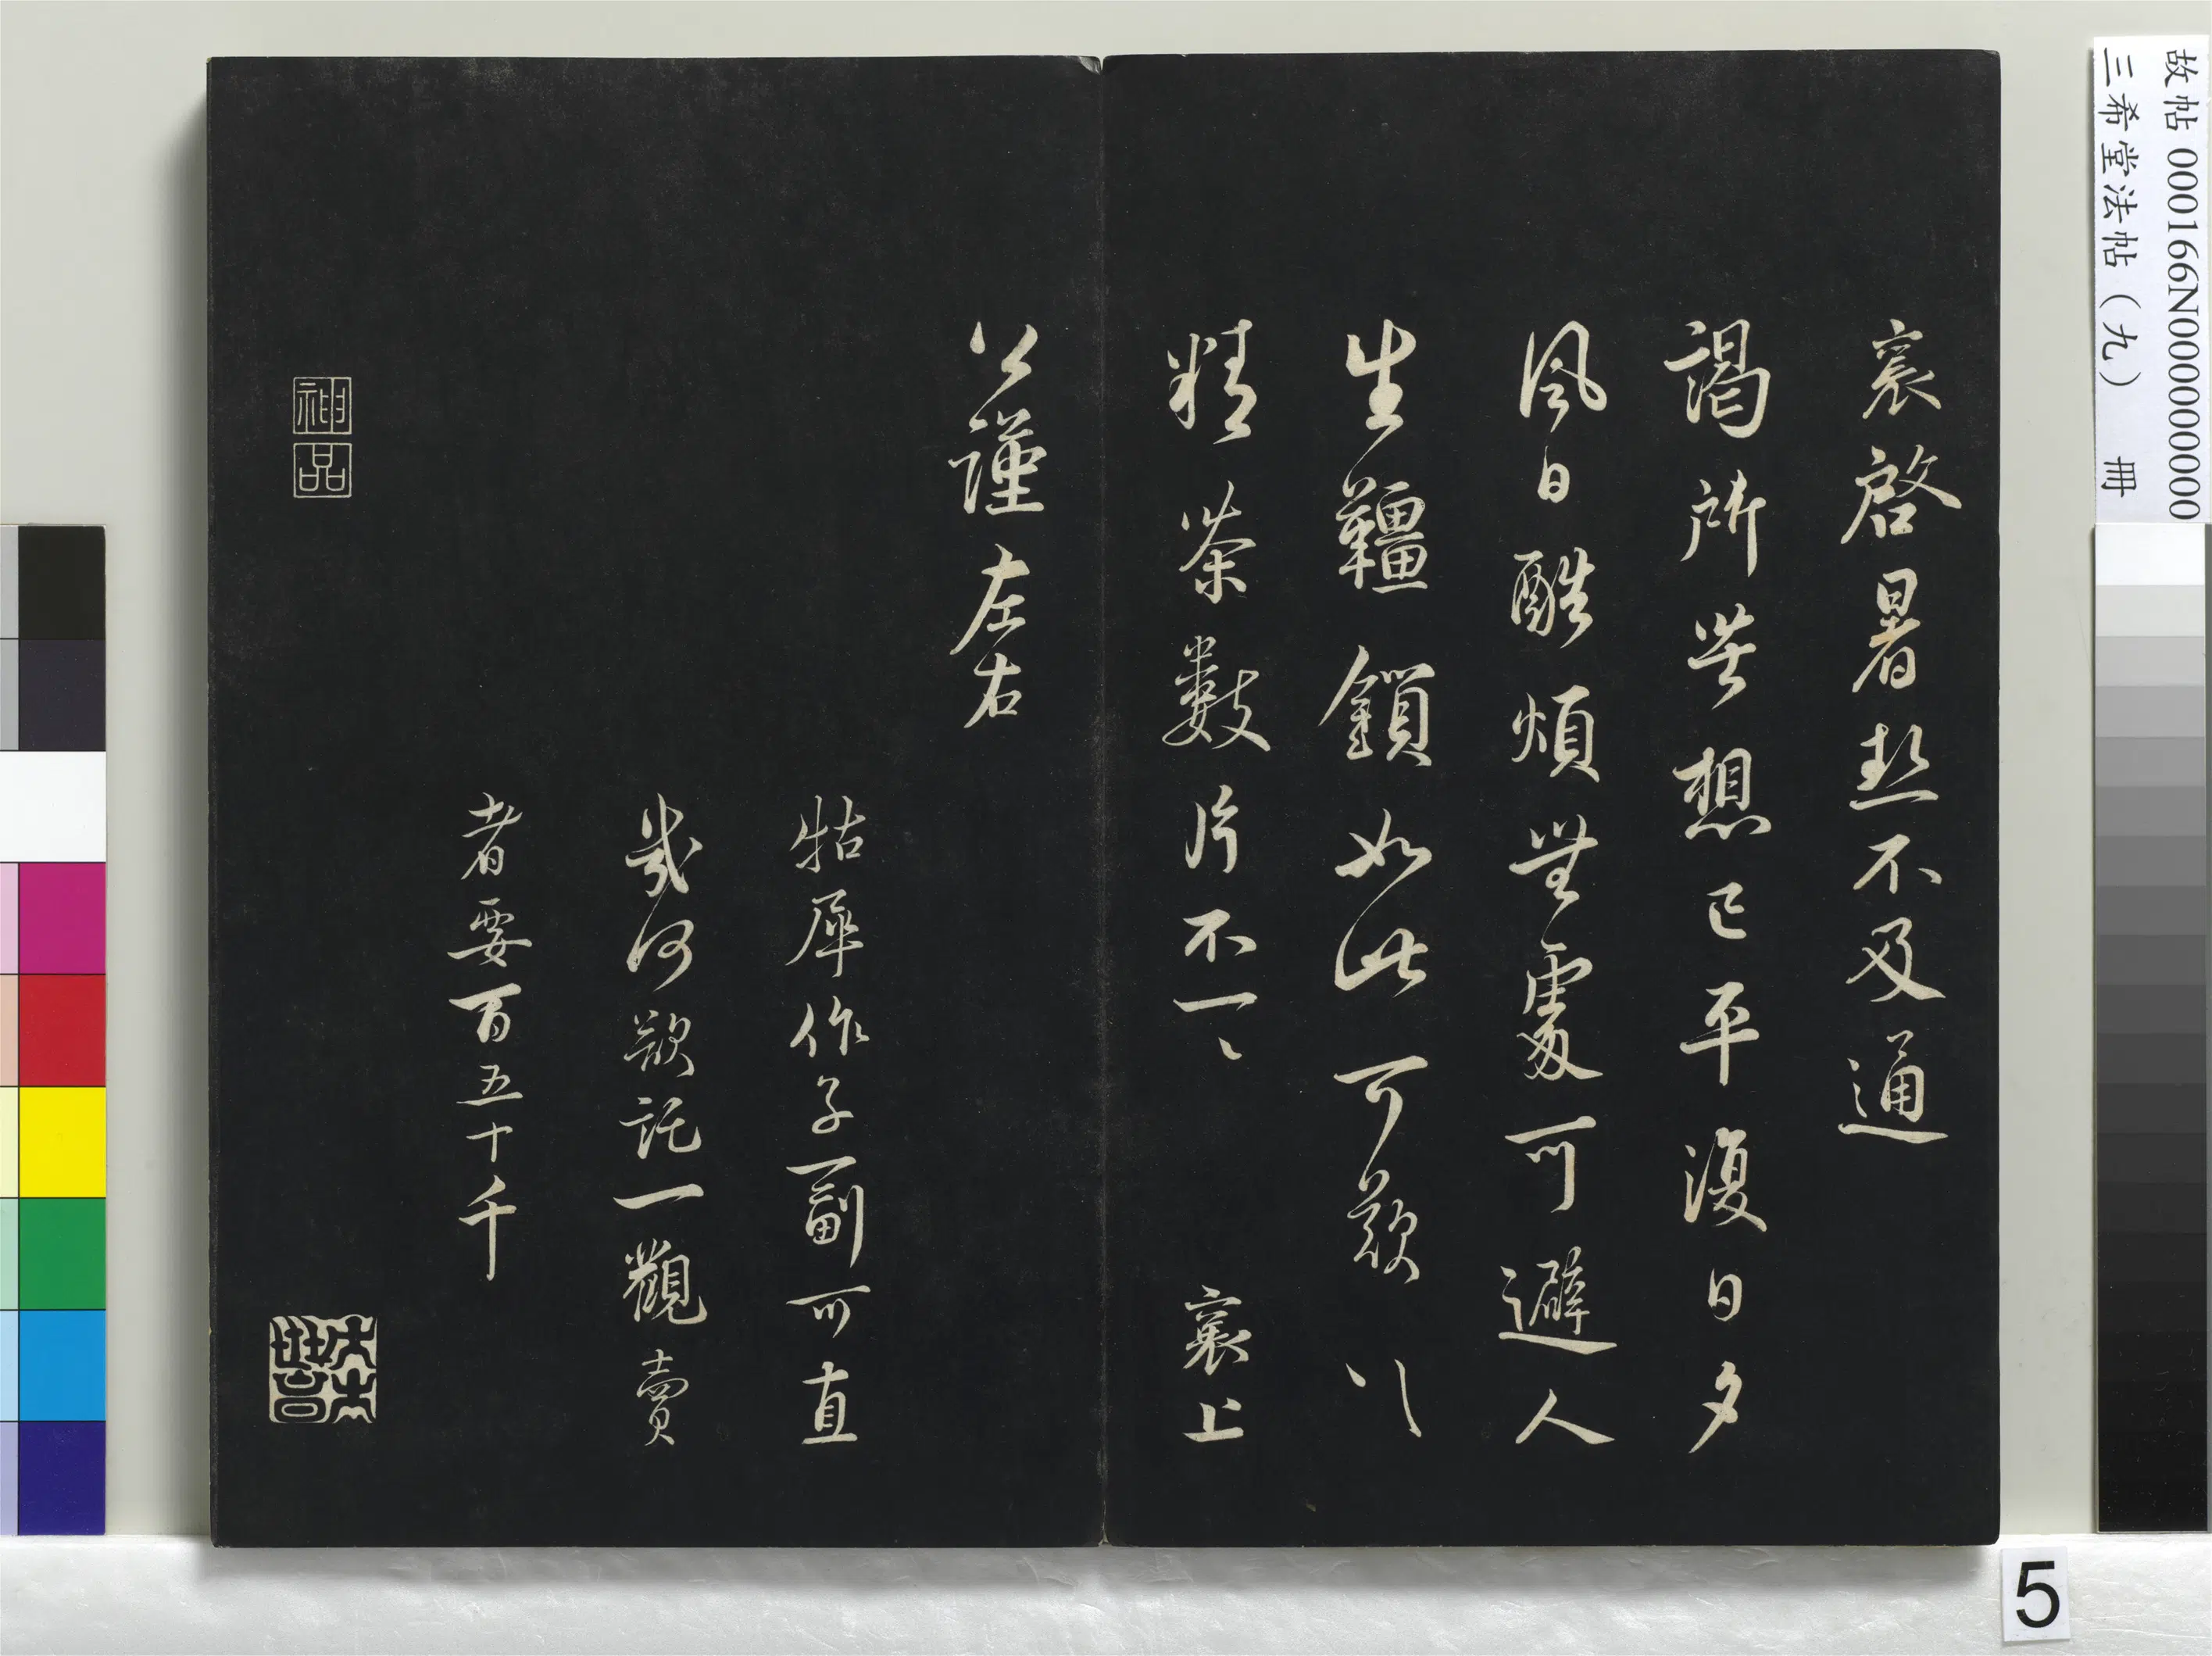 襄啓暑熱不及通
謁所苦想已平復日夕
風日酷煩無處可避人
生韁鎖如此可歎以
精茶數片不一一 襄上
公謹左右
牯犀作子一副可直
幾何欲託一觀賣
者要百五十千
神品
故帖 000166N000000000
三希堂法帖（九） 冊
5